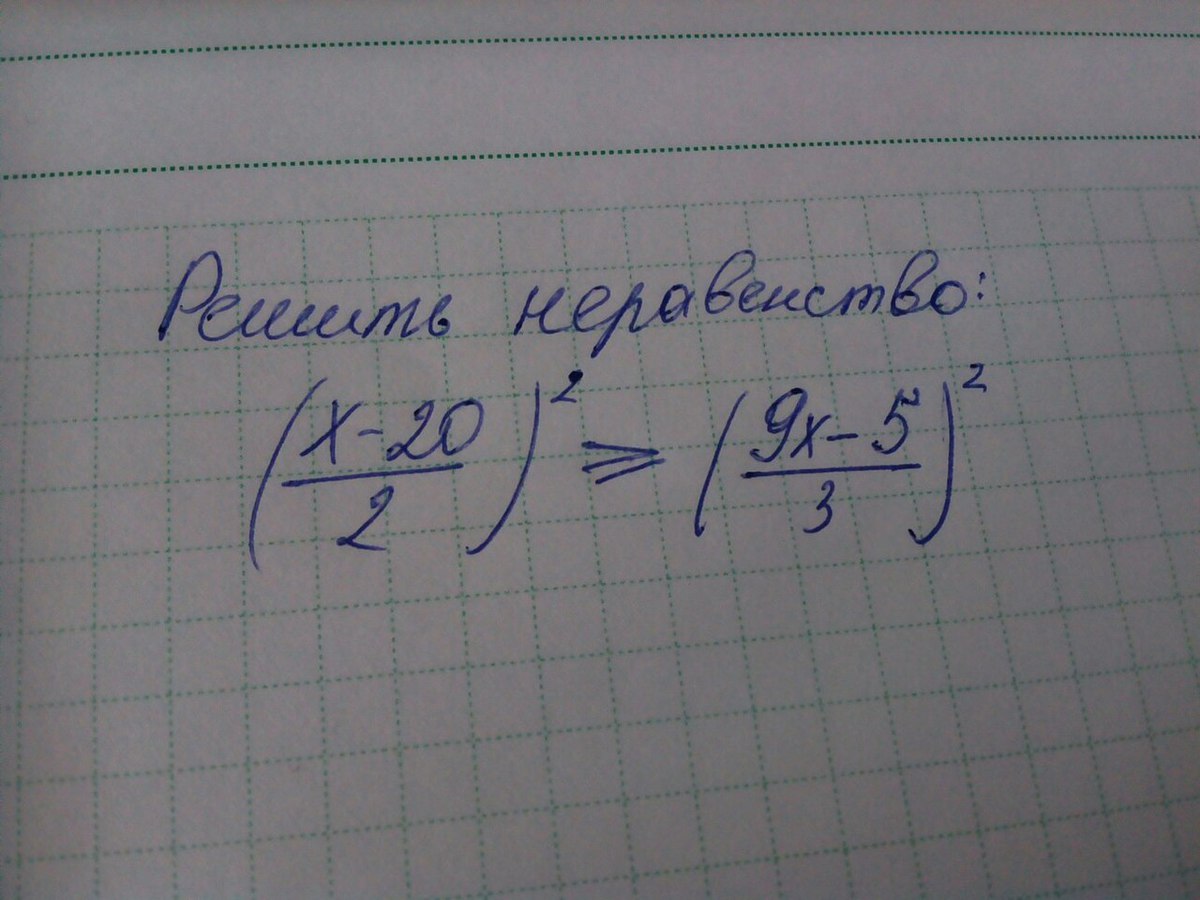 Решить неравенство:
(x-20/2)² ⩾ (9x-5/3)²